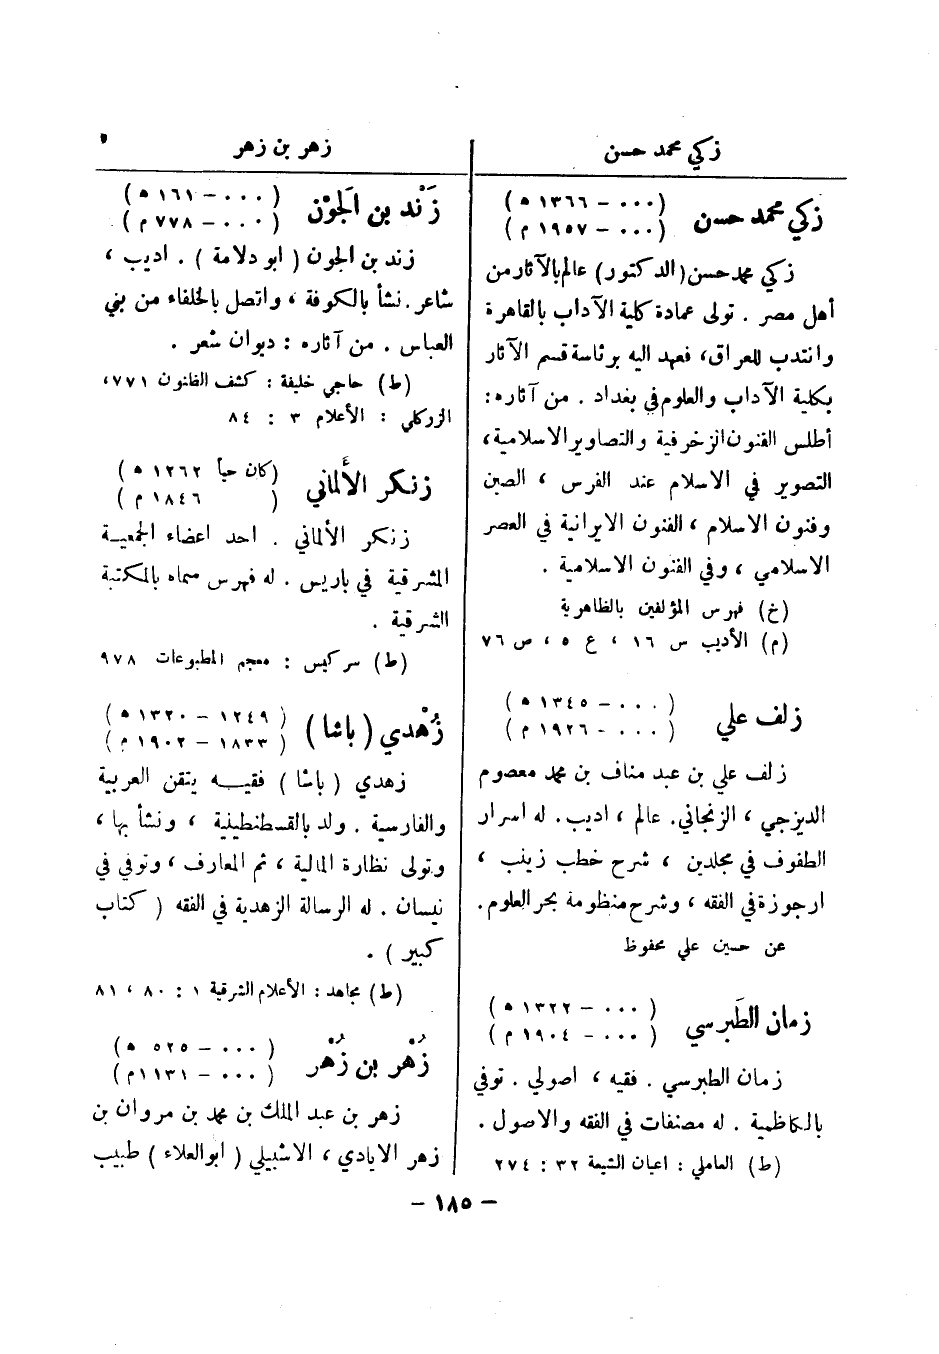 زكي محمد حسن
زكي محمد حسن
(٠٠٠ – ١٣٦٦ ه)
(٠٠٠ – ١٩٥٧ م)
زكي محمد حسن (الدكتور) عالم بالآثار من
أهل مصر . تولى عمادة كلية الآداب بالقاهرة
وانتدب للعراق، فعهد اليه برئاسة قسم الآثار
بكلية الآداب والعلوم في بغداد . من آثاره :
أطلس الفنون الزخرفية والتصاوير الاسلامية،
التصوير في الاسلام عند الفرس ، الصين
وفنون الاسلام ، الفنون الايرانية في العصر
الاسلامي ، وفي الفنون الاسلامية .
(خ) فهرس المؤلفين بالظاهرية
(م) الأديب س ١٦ ، ع ٥ ، ص ٧٦
زلف علي
(٠٠٠ – ١٣٤٥ ه)
(٠٠٠ – ١٩٢٦ م)
زلف علي بن عبد مناف بن محمد معصوم
الديزجي ، الزنجاني. عالم ، اديب . له اسرار
الطفوف في مجلدين ، شرح خطب زينب ،
ارجوزة في الفقه ، وشرح منظومة بحر العلوم .
عن حسين علي محفوظ
زمان الطَبرسي
(٠٠٠ – ١٣٢٢ ه)
(٠٠٠ – ١٩٠٤ م)
زمان الطبرسي . فقيه ، اصولي . توفي
بالكاظمية . له مصنفات في الفقه والاصول .
(ط) العاملي : اعيان الشيعة ٣٢ : ٢٧٤
زهر بن زهر
زَنْد بن الجَوْن
(٠٠٠ – ١٦١ ه)
(٠٠٠ – ٧٧٨ م)
زند بن الجون ( ابو دلامة ) . اديب ،
شاعر . نشأ بالكوفة ، واتصل بالخلفاء من بني
العباس . من آثاره : ديوان شعر .
(ط) حاجي خليفة : كشف الظنون ٧٧١،
الزركلي : الأعلام ٣ : ٨٤
زنكر الألماني
(كان حياً ١٢٦٢ ه)
( ١٨٤٦ م)
زنكر الألماني . احد اعضاء الجمعية
المشرقية في باريس . له فهرس سماه بالمكتبة
الشرقية .
(ط) سركيس : معجم المطبوعات ٩٧٨
زُهْدي (باشا)
(١٢٤٩ – ١٣٢٠ ه)
(١٨٣٣ – ١٩٠٢ م)
زهدي ( باشا ) فقيه يتقن العربية
والفارسية . ولد بالقسطنطينية ، ونشأ بها ،
وتولى نظارة المالية ، ثم المعارف ، وتوفي في
نيسان . له الرسالة الزهدية في الفقه ( كتاب
كبير ) .
(ط) مجاهد : الأعلام الشرقية ١ : ٨٠ ، ٨١
زُهْر بن زُهْر
(٠٠٠ – ٥٢٥ ه)
(٠٠٠ – ١١٣١ م)
زهر بن عبد الملك بن محمد بن مروان بن
زهر الايادي ، الاشبيلي ( ابو العلاء ) طبيب
– ١٨٥ –